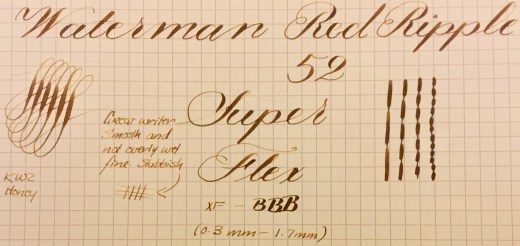 Waterman Red Ripple
52
Super
Flex
XF - BBB
(0.3 mm - 1.7mm)
Great writer
Smooth and
not overly wet
fine Stubbish
KWZ
Honey